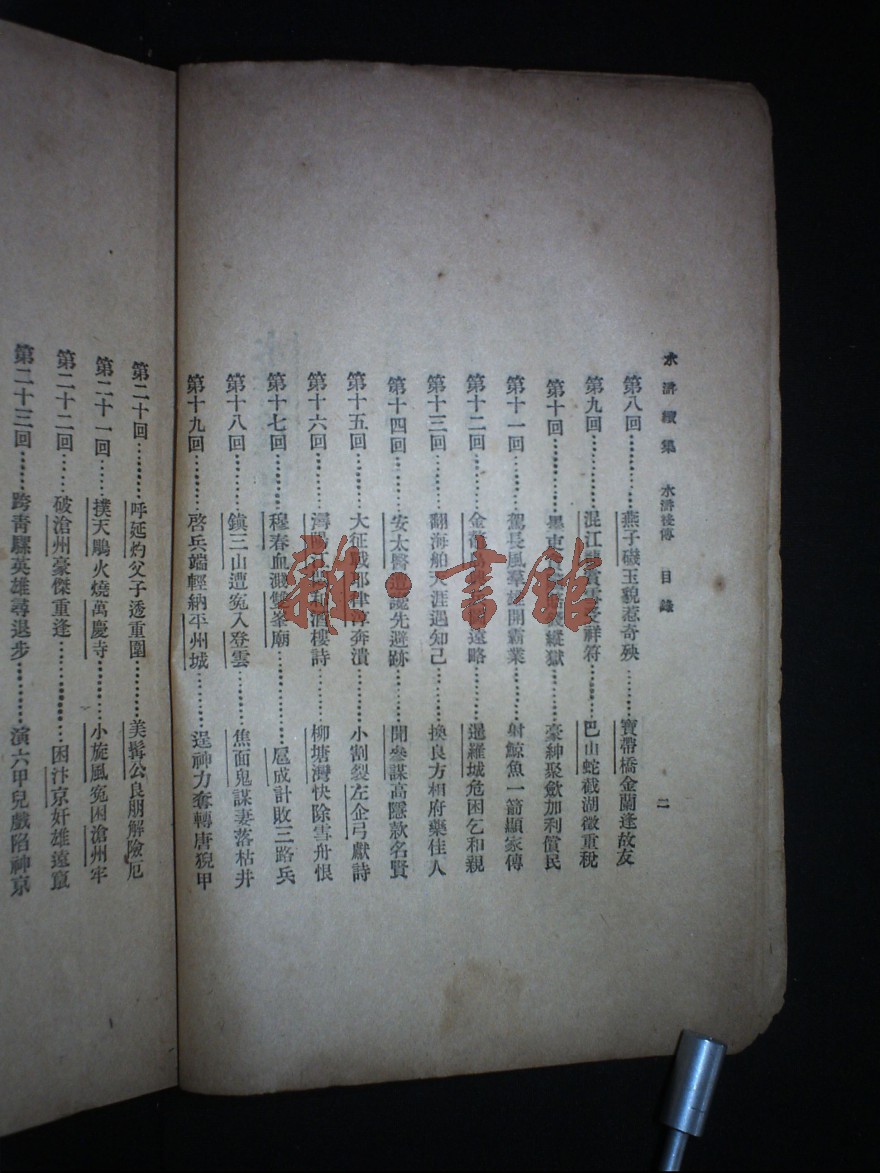 水滸續集 水滸後傳 目錄
二
第八回………燕子磯玉貌惹奇殃………寶帶橋金蘭逢故友
第九回………混江龍賞雪受祥符………巴山蛇截湖徵重稅
第十回………墨吏 縱獄 豪紳聚斂加利償民
第十一回………駕長風羣雄開霸業 射鯨魚一箭顯家傳
第十二回………金鰲島 遠略 暹羅城危困乞和親
第十三回………翻海舶天涯遇知己………換良方相府藥佳人
第十四回………安太醫遭讒先避跡………聞參謀高隱款名賢
第十五回………大征戰耶律淳奔潰………小割裂左企弓獻詩
第十六回………潯陽江 和酒樓詩………柳塘灣快除雪舟恨
第十七回………穆春血濺雙峯廟………扈成計敗三路兵
第十八回………鎭三山遭寃入登雲………焦面鬼謀妻落枯井
第十九回………啓兵端輕納平州城………逞神力奪轉唐猊甲
第二十回………呼延灼父子透重圍………美髯公良朋解險厄
第二十一回……撲天鵰火燒萬慶寺………小旋風寃困滄州牢
第二十二回……破滄州豪傑重逢………困汴京奸雄遠竄
第二十三回……跨青騾英雄尋退步………演六甲兒戲陷神京
雜·書館